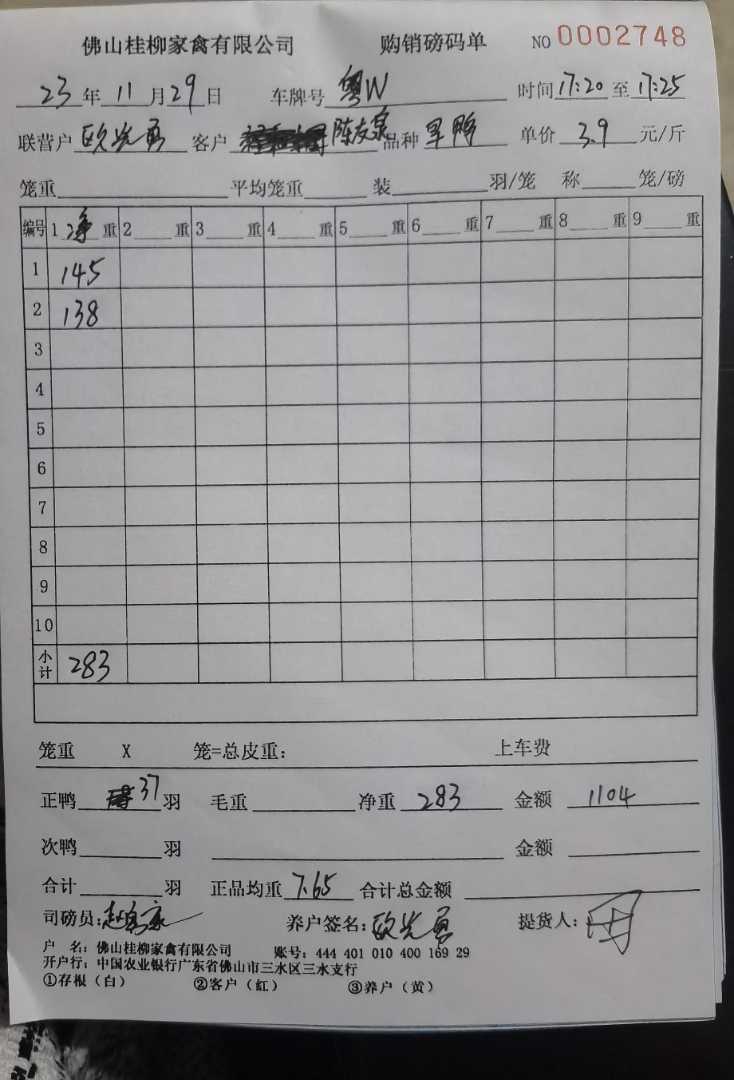 佛山桂柳家禽有限公司 购销磅码单 NO 0002748
23年11月29日 车牌号 粤W 时间17:20至17:25
联营户 欧光勇 客户 陈友泉 品种 旱鸭 单价 3.9 元/斤
笼重 平均笼重 装 羽/笼 称 笼/磅
编号 1 净 重 2 重 3 重 4 重 5 重 6 重 7 重 8 重 9 重
1 145
2 138
3
4
5
6
7
8
9
10
小计 283
笼重 X 笼=总皮重: 上车费
正鸭 37 羽 毛重 净重 283 金额 1104
次鸭 羽 金额
合计 羽 正品均重 7.65 合计总金额
司磅员: 养户签名: 欧光勇 提货人:
户 名: 佛山桂柳家禽有限公司 账号: 444 401 010 400 169 29
开户行: 中国农业银行广东省佛山市三水区三水支行
①存根(白) ②客户(红) ③养户(黄)